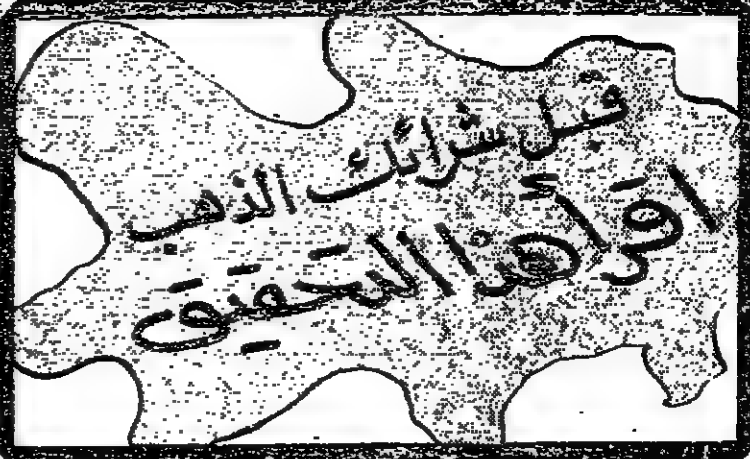 قبل شرائك الذهب
اقرأ هذا التحقيق